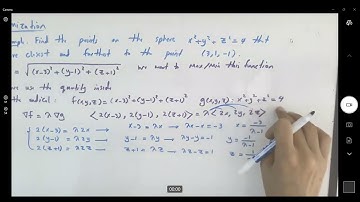 mization
Find the points on the sphere x²+y²+z²=4 that
closest and farthest to the point (3,1,-1).
= √(x-3)²+(y-1)²+(z+1)² we want to max/min this function
use the quantity inside
the radical: f(x,y,z)=(x-3)²+(y-1)²+(z+1)² g(x,y,z): x²+y²+z²=4
∇f = λ∇g <2(x-3), 2(y-1), 2(z+1)> = λ<2x, 2y, 2z>
2(x-3) = λ2x → x-3 = λx → λx-x = -3 x = -3/λ-1
2(y-1) = λ2y → y-1 = λy → λy-y = -1 y = -1/λ-1
2(z+1) = λ2z → z+1 = λz → λz-z = 1 z =
00:00